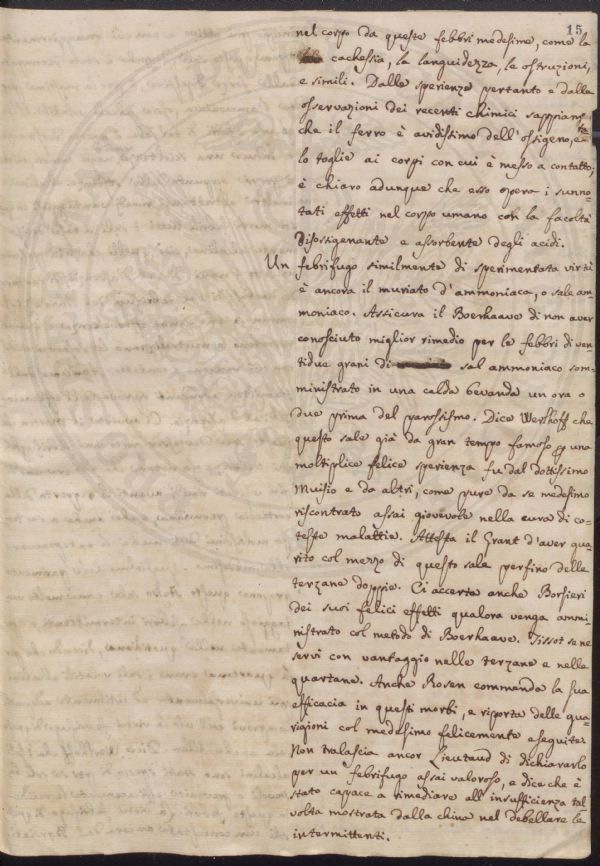 15
nel corpo da queste febbri medesime, come la
cachessia, la languidezza, le ostruzioni,
e simili. Dalle sperienze pertanto e dalle
osservazioni dei recenti chimici sappiamo
che il ferro è avidissimo dell'ossigeno, e
lo toglie ai corpi con cui è messo a contatto;
è chiaro adunque che esso opera i sunno-
tati effetti nel corpo umano con la facoltà
disossigenante e assorbente degli acidi.
Un febrifugo similmente di sperimentata virtù
è ancora il muriato d'ammoniaca, o sale am-
moniaco. Assicura il Boerhaave di non aver
conosciuto miglior rimedio per le febbri di ven-
tidue grani di sal ammoniaco som-
ministrato in una calda bevanda un ora o
due prima del parossismo. Dice Werlhoff che
questo sale già da gran tempo famoso una
moltiplice felice sperienza fu dal dottissimo
Muisio e da altri, come pure da se medesimo
riscontrato assai giovevole nella cura di co-
teste malattie. Attesta il Grant d'aver gua-
rito col mezzo di questo sale perfino delle
terzane doppie. Ci accerta anche Borsieri
dei suoi felici effetti qualora venga ammi-
nistrato col metodo di Boerhaave. Tissot se ne
servì con vantaggio nelle terzane e nelle
quartane. Anche Rosen commenda la sua
efficacia in questi morbi, e riporta delle gua-
rigioni col medesimo felicemente eseguite.
Non tralascia ancor Lieutaud di dichiararlo
per un febrifugo assai valoroso, e dice che è
stato capace a rimediare all'insufficienza tal
volta mostrata dalla china nel debellare le
intermittenti.